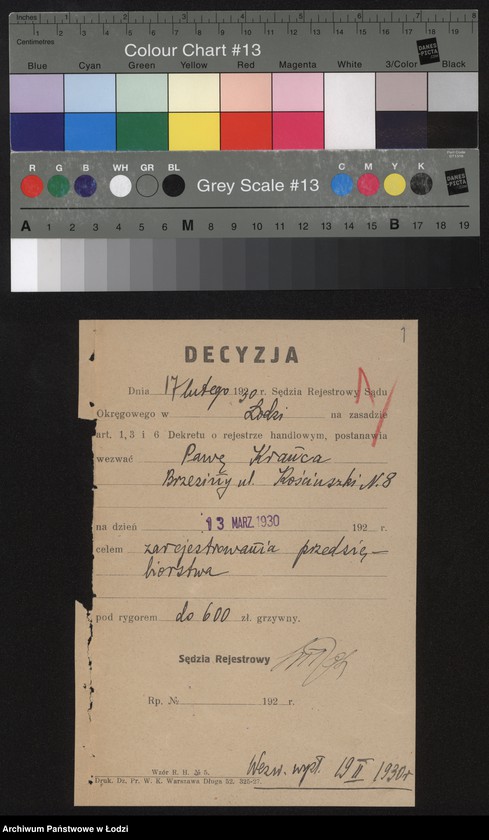 Inches 1 2 3 4 5 6 7 8
Centimetres 1 2 3 4 5 6 7 8 9 10 11 12 13 14 15 16 17 18 19
Colour Chart #13
DANES-PICTA
Blue Cyan Green Yellow Red Magenta White 3/Color Black
R G B WH GR BL Grey Scale #13 C M Y K
DANES-PICTA
A 1 2 3 4 5 6 M 8 9 10 11 12 13 14 15 B 17 18 19
1
DECYZJA
Dnia 17 lutego 1930 r. Sędzia Rejestrowy Sądu
Okręgowego w Łodzi na zasadzie
art. 1, 3 i 6 Dekretu o rejestrze handlowym, postanawia
wezwać Krawca
Brzeziny ul. Kościuszki N. 8
na dzień 13 MARZ. 1930 192 r.
celem zarejestrowania przedsię-
biorstwa
pod rygorem do 600 zł. grzywny.
Sędzia Rejestrowy
Rp. № 192 r.
Wezw. wysł. 19 II 1930 r
Wzór R. H. № 5.
Druk. Dz. Pr. W. K. Warszawa Długa 52.
Archiwum Państwowe w Łodzi